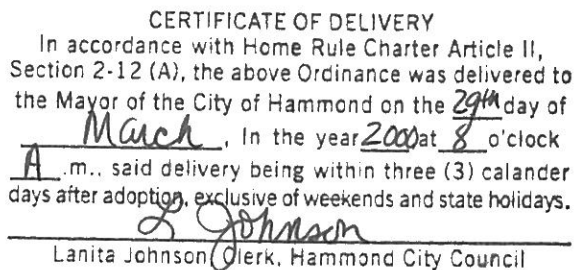 CERTIFICATE OF DELIVERY
In accordance with Home Rule Charter Article II,
Section 2-12 (A), the above Ordinance was delivered to
the Mayor of the City of Hammond on the 29th day of
March, In the year 2000 at 8 o'clock
A.m., said delivery being within three (3) calander
days after adoption, exclusive of weekends and state holidays.
L Johnson
Lanita Johnson Clerk, Hammond City Council